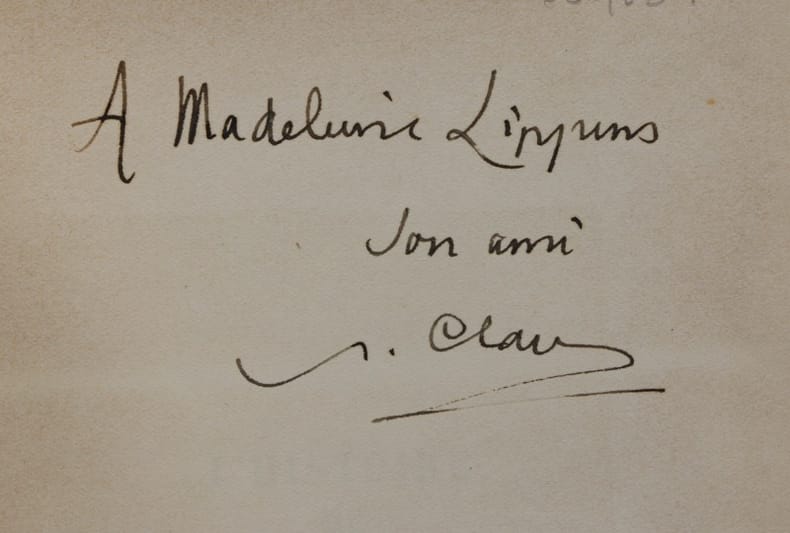 A Madeleine Lippens
son ami
Claudel